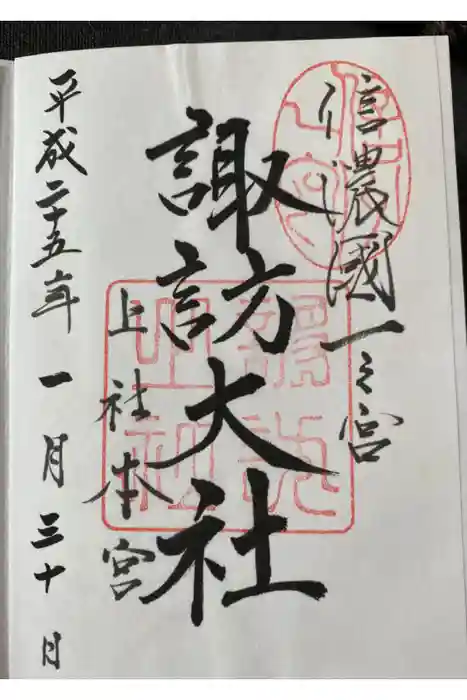 信濃國一之宮
諏訪大社
上社本宮
平成二十五年一月三十日